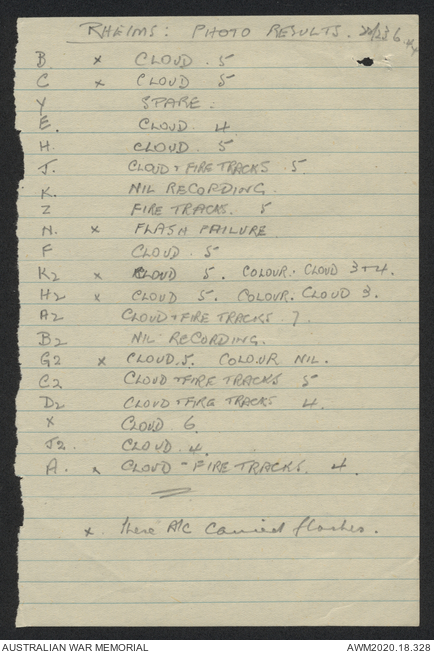 RHEIMS: PHOTO RESULTS. 22/23 6.44
B x CLOUD. 5
C x CLOUD 5
Y SPARE.
E. CLOUD. 4
H. CLOUD. 5
J. CLOUD + FIRE TRACKS. 5.
K. NIL RECORDING.
Z FIRE TRACKS. 5
N. x FLASH FAILURE
F CLOUD. 5
K2 x CLOUD 5. COLOUR. CLOUD 3+4.
H2 x CLOUD 5. COLOUR. CLOUD 3.
A2 CLOUD + FIRE TRACKS. 7
B2 NIL RECORDING.
G2 x CLOUD. 5. COLOUR NIL.
C2 CLOUD + FIRE TRACKS 5
D2 CLOUD + FIRE TRACKS 4.
X CLOUD 6.
J2. CLOUD. 4.
A. x CLOUD - FIRE TRACKS. 4.
x. These A/C carried flashes.
AUSTRALIAN WAR MEMORIAL AWM2020.18.328